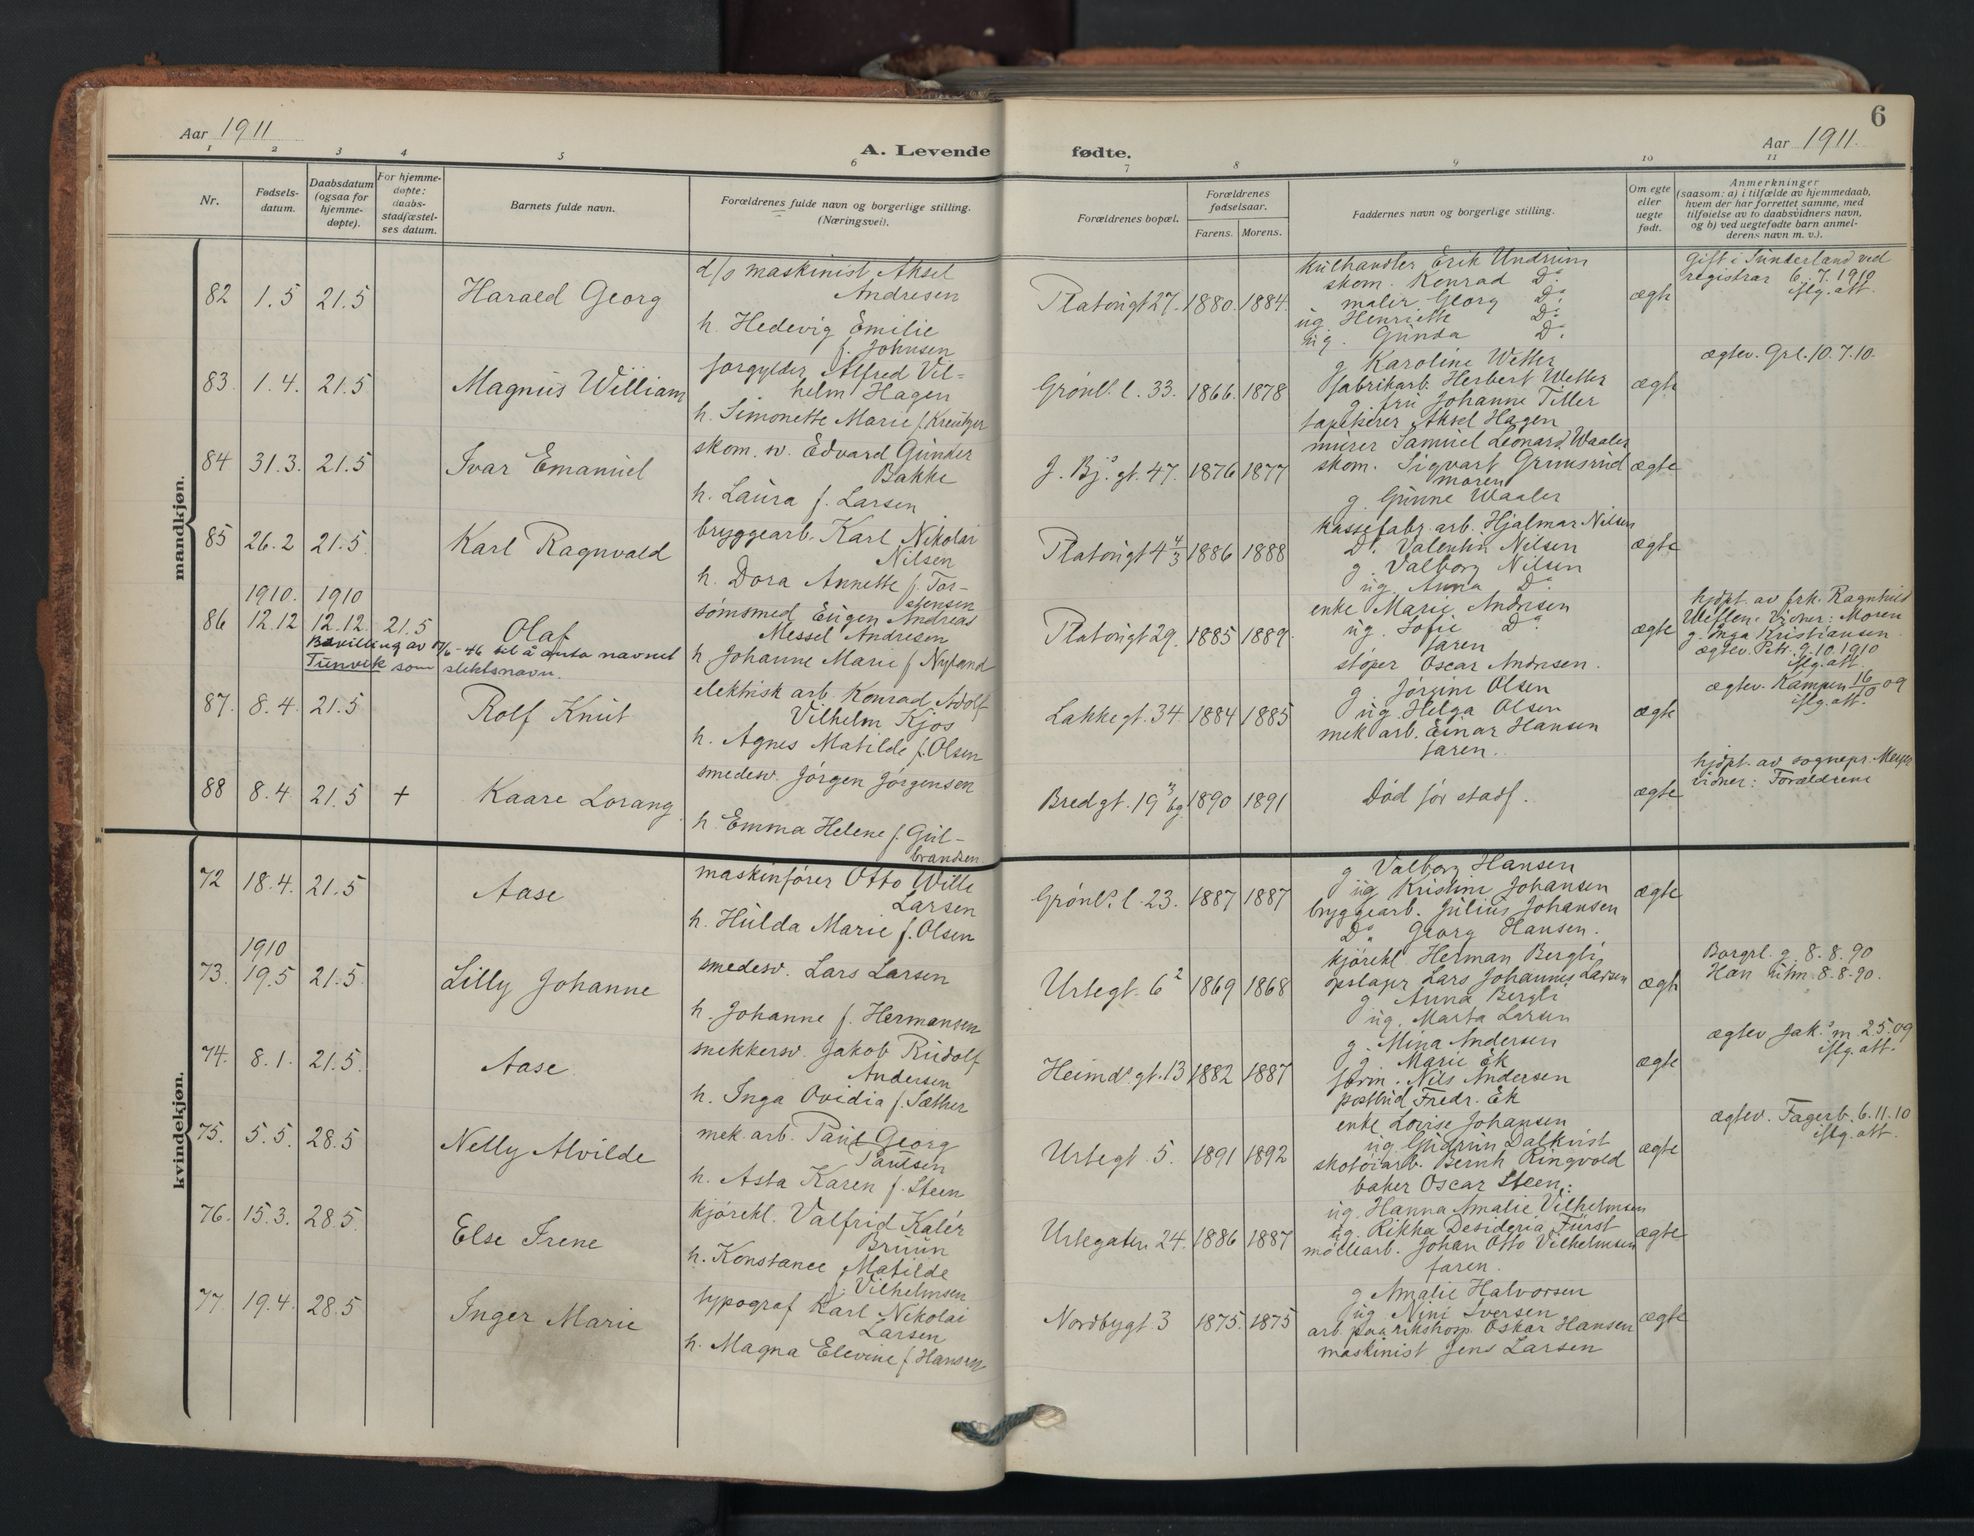 Aar 1911
A. Levende fødte.
6
Aar 1911.
1 2 3 4 5 6 7 8 9 10 11
Nr.
Fødsels-
datum.
Daabsdatum
(ogsaa for
hjemme-
døpte).
For hjemme-
døpte:
daabs-
stadfæstel-
ses datum.
Barnets fulde navn.
Forældrenes fulde navn og borgerlige stilling.
(Næringsvei).
Forældrenes bopæl.
Forældrenes
fødselsaar.
Farens. Morens.
Faddernes navn og borgerlige stilling.
Om egte
eller
uegte
født.
Anmerkninger
(saasom: a) i tilfælde av hjemmedaab,
hvem der har forrettet samme, med
tilføielse av to daabsvidners navn,
og b) ved uegtefødte barn anmel-
derens navn m. v.).
mandkjøn.
82 1.5 21.5 Harald Georg
d/s maskinist Aksel
Andresen
h. Hedevig Emilie
f. Johnsen
Platousgt 27. 1880. 1884.
kulhandler Erik Undrum
skom. Konrad Do
maler Georg Do
ug Henriette Do
ug. Gunda Do
ægte
Gift i Sunderland ved
registrar 6.7.1910
iflg. att.
83. 1.4. 21.5 Magnus William
forgylder Alfred Vil-
helm Hagen
h. Simonette Marie f. Kreutzer
Grønl. l. 33. 1866. 1878
g Karoline Wetter
fabrikarb. Herbert Wetter
g fru Johanne Tiller
tapetserer Aksel Hagen
ægte
ægtev. Grl. 10.7.10.
84 31.3. 21.5 Ivar Emanuel
skom. sv. Edvard Gunder
Bakke
h. Laura f. Larsen
J. Bj.s gt. 47. 1876 1877
murer Samuel Leonard Waaler
skom. Sigvart Grimsrud
moren
g. Gunne Waaler
ægte
85 26.2 21.5. Karl Ragnvald
bryggearb. Karl Nikolai
Nilsen
h. Dora Annette f. Tor-
stensen
Platousgt 4 4/3 1886 1888
kassefabr. arb. Hjalmar Nilsen
Do. Valentin Nilsen
g. Valborg Nilsen
ug. Anna Do
ægte
1910. 1910
86 12.12 12.12. 21.5 Olaf
Bevilling av 17/6-46 til å anta navnet
Tunvik som slektsnavn.
sømsmed Eugen Andreas
Messel Andresen
h Johanne Marie f Nyland
Platousgt 29. 1885 1889.
enke Marie Andresen
ug. Sofie Do
faren
støper Oscar Andresen.
ægte
hjdpt. av frk. Ragnhild
Vidner: Moren
g. Inga Kristiansen
ægtev. Petr. 9.10.1910
iflg. att.
87. 8.4. 21.5 Rolf Knut
elektrisk arb. Konrad Adolf
Vilhelm Kjos
h. Agnes Matilde f. Olsen
Lakkegt. 34. 1884 1885
g. Jørgine Olsen
ug. Helga Olsen
mek arb. Einar Hansen
faren.
ægte
ægtev. Kampen 16/10 09
iflg. att.
88 8.4. 21.5 + Kaare Lorang.
smedesv. Jørgen Jørgensen
h. Emma Helene f. Gul-
brandsen
Bredgt. 19 3/bg 1890 1891
Død før stadf.
ægte
hjdpt. av sognepr. Meyer
vidner: Forældrene
kvindekjøn.
72 18.4. 21.5 Aase
maskinfører Otto Wille
Larsen
h. Hulda Marie f. Olsen
Grønl.s l. 23. 1887 1887
g Valborg Hansen
ug Kristine Johansen
bryggearb. Julius Johansen
Do Georg Hansen.
ægte
1910
73. 19.5 21.5. Lilly Johanne
smedesv. Lars Larsen
h. Johanne f. Hermansen
Urtegt. 6 2 1869 1868
kjørekl Herman Bergli
Lars Johannes Larsen
g Anna Bergli
ug. Marta Larsen
ægte
Borgrl. g. 8.8.90
Han 8.8.90.
74. 8.1. 21.5. Aase.
snekkersv. Jakob Rudolf
Andersen
h. Inga Ovidia f. Sæther
Heimd.s gt. 13 1882 1887
g. Mina Andersen
g. Marie Ek
form. Nils Andersen
postbud Fredr. Ek
ægte
ægtev Jak.s m. 2.5.09
iflg. att.
75. 5.5. 28.5 Nelly Alvilde
mek. arb. Paul Georg
Paulsen
h. Asta Karen f. Steen
Urtegt. 5. 1891 1892
enke Lovise Johansen
ug. Gudrun Dalkvist
skotøiarb. Bernh Ringvold
baker Oscar Steen.
ægte
ægtev. Fagerb. 6.11.10
iflg. att.
76. 15.3. 28.5. Else Irene
kjørekl. Valfrid Kalér
Bruun
h. Konstance Matilde
f. Vilhelmsen
Urtegaten 24. 1886 1887
ug. Hanna Amalie Vilhelmsen
ug. Rikka Desideria Fürst
møllearb. Johan Otto Vilhelmsen
faren.
ægte
77 19.4. 28.5 Inger Marie
typograf Karl Nikolai
Larsen
h. Magna Elevine f. Hansen
Nordbygt 3 1875. 1875
g Amalie Halvorsen
ug Nini Iversen
arb. paa rikshosp. Oskar Hansen
maskinist Jens Larsen
ægte